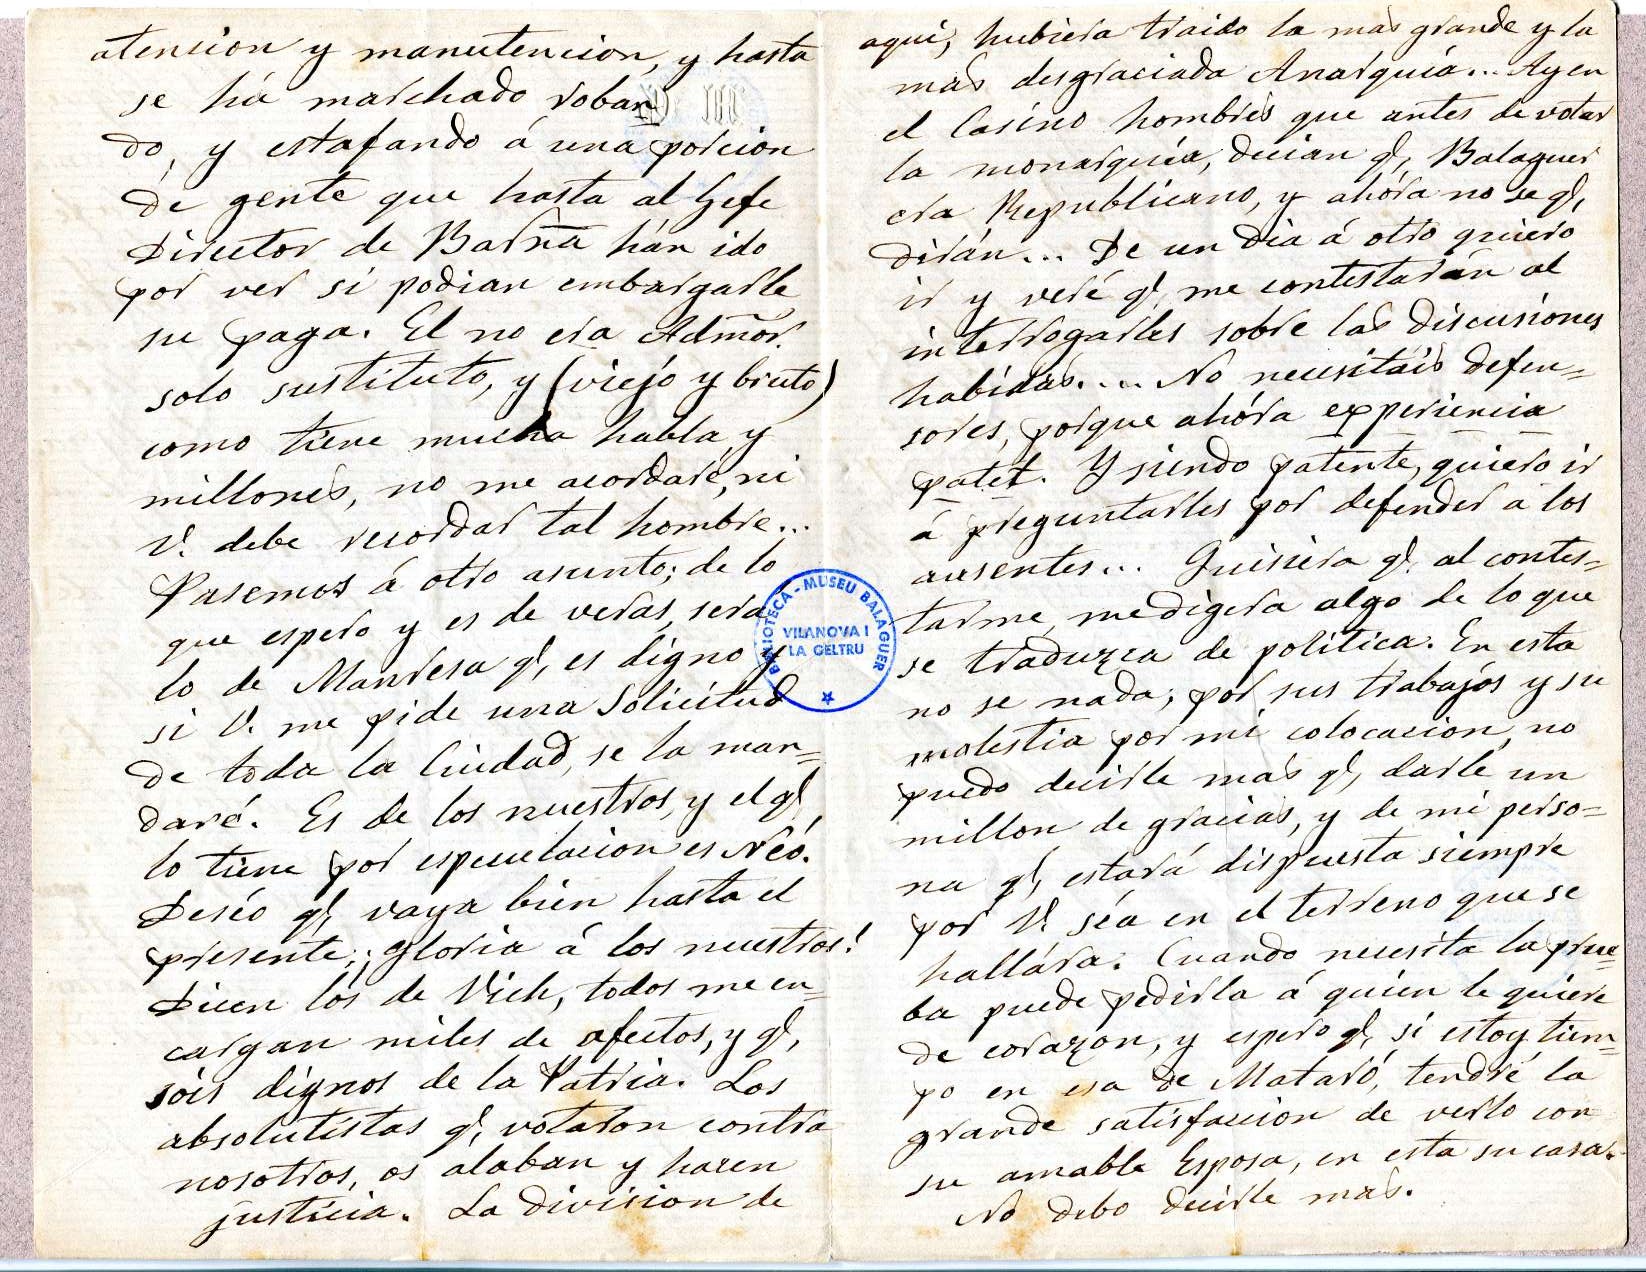 atension y manutencion, y hasta
se há marchado roban
do, y estafando á una porcion
de gente que hasta al Gefe
Director de Barna hán ido
por ver si podian embargarle
su paga. El no era Admor.
solo sustituto, y (viejo y bruto)
como tiene mucha habla y
millones, no me acordaré, ni
V. debe recordar tal hombre...
Pasemos á otro asunto; de lo
que espero y es de veras, sera
lo de Manresa q, es digno y
si V. me pide una Solicitud
de toda la Ciudad, se la man=
daré. Es de los nuestros, y el q,
lo tiene por especulacion es Néo.
Deséo q, vaya bien hasta el
presente, ¡gloria á los nuestros!
Dicen los de Vich, todos me en=
cargan miles de afectos, y q,
sóis dignos de la Patria. Los
absolutistas q, votaron contra
nosotros, os alaban y hacen
justicia. La division de
aqui, hubiera traido la mas grande y la
mas desgraciada Anarquia... Ay en
el Casino hombres que antes de votar
la monarquia, decian q, Balaguer
era Republicano, y ahóra no se q,
dirán... De un dia á otro quiero
ir y veré q, me contestarán al
interrogarles sobre las discusiones
habidas.... No necesitais defen=
sores, porque ahóra experiencia
patet. Y siendo patente, quiero ir
á preguntarles por defender á los
ausentes... Quisiera q, al contes=
tarme, me digera algo de lo que
se traduzca de politica. En esta
no se nada; por sus trabajós y su
molestia por mi colocacion, no
puedo decirle más q, darle un
millon de gracias, y de mi perso=
na q, estará dispuesta siempre
por V. séa en el terreno que se
hallára. Cuando necesita la prue=
ba puede pedirla á quien le quiere
de corazon, y espero q, si estoy tiem=
po en esa de Mataró, tendré la
grande satisfaccion de verlo con
su amable Esposa, en esta su casa.
No debo decirle mas.
BIBLIOTECA-MUSEU BALAGUER
VILANOVA I
LA GELTRU